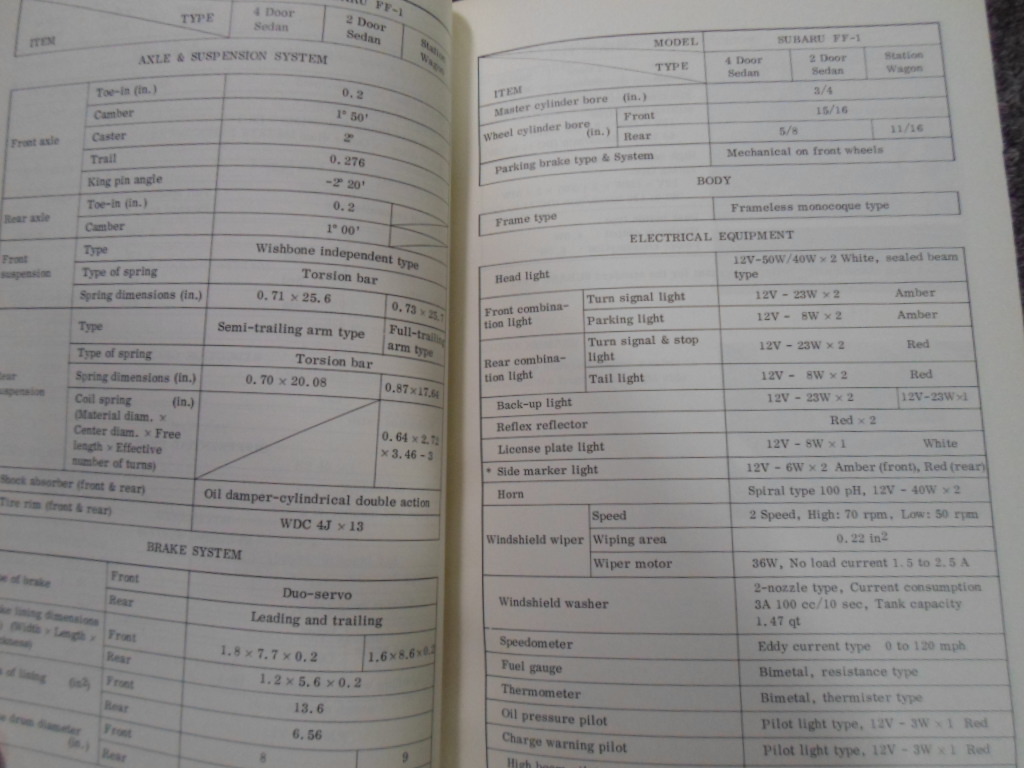 SUBARU FF-1
TYPE
4 Door Sedan
2 Door Sedan
Station Wagon
ITEM
AXLE & SUSPENSION SYSTEM
Front axle
Toe-in (in.) 0.2
Camber 1° 50'
Caster 2°
Trail 0.276
King pin angle -2° 20'
Rear axle
Toe-in (in.) 0.2
Camber 1° 00'
Front suspension
Type Wishbone independent type
Type of spring Torsion bar
Spring dimensions (in.) 0.71 × 25.6 0.73 × 25.7
Type Semi-trailing arm type Full-trailing arm type
Type of spring Torsion bar
Spring dimensions (in.) 0.70 × 20.08 0.87×17.64
Coil spring (in.)
(Material diam. ×
Center diam. × Free
length × Effective
number of turns)
0.64 × 2.72
× 3.46 - 3
Shock absorber (front & rear) Oil damper-cylindrical double action
Tire rim (front & rear) WDC 4J × 13
BRAKE SYSTEM
of brake
Front Duo-servo
Rear Leading and trailing
lining dimensions
(Width × Length ×
Front 1.8 × 7.7 × 0.2 1.6×8.6×0.2
Rear 1.2 × 5.6 × 0.2
of lining (in²)
Front 13.6
Rear 6.56
drum diameter
(in.)
Front 8 9
Rear
MODEL SUBARU FF-1
TYPE
4 Door Sedan
2 Door Sedan
Station Wagon
ITEM
Master cylinder bore (in.) 3/4
Wheel cylinder bore (in.)
Front 15/16
Rear 5/8 11/16
Parking brake type & System Mechanical on front wheels
BODY
Frame type Frameless monocoque type
ELECTRICAL EQUIPMENT
Head light 12V-50W/40W × 2 White, sealed beam
type
Front combina-
tion light
Turn signal light 12V - 23W × 2 Amber
Parking light 12V - 8W × 2 Amber
Rear combina-
tion light
Turn signal & stop
light 12V - 23W × 2 Red
Tail light 12V - 8W × 2 Red
Back-up light 12V - 23W × 2 12V-23W×1
Reflex reflector Red × 2
License plate light 12V - 8W × 1 White
* Side marker light 12V - 6W × 2 Amber (front), Red (rear)
Horn Spiral type 100 pH, 12V - 40W × 2
Windshield wiper
Speed 2 Speed, High: 70 rpm, Low: 50 rpm
Wiping area 0.22 in²
Wiper motor 36W, No load current 1.5 to 2.5 A
Windshield washer
2-nozzle type, Current consumption
3A 100 cc/10 sec, Tank capacity
1.47 qt
Speedometer Eddy current type 0 to 120 mph
Fuel gauge Bimetal, resistance type
Thermometer Bimetal, thermister type
Oil pressure pilot Pilot light type, 12V - 3W × 1 Red
Charge warning pilot Pilot light type, 12V - 3W × 1 Red
High beam